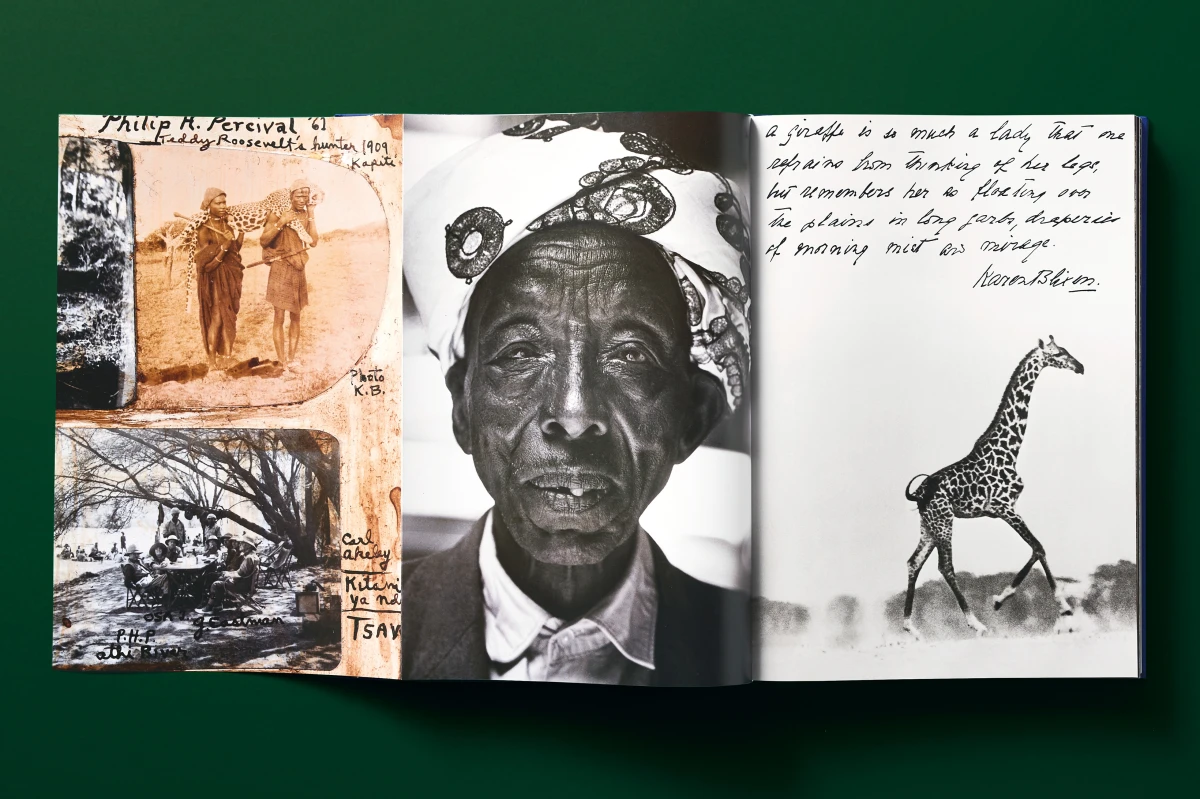 Philip H. Percival '61
Teddy Roosevelt's hunter 1909
Kapiti
Photo
K.B.
Carl
Akeley
Kitani
ya nd
TSAV
osa
G. Eastman
P.H.P.
athi River
a giraffe is so much a lady that one
refrains from thinking of her legs,
but remembers her as floating over
the plains in long garbs, draperies
of morning mist or mirage.
Karen Blixen.